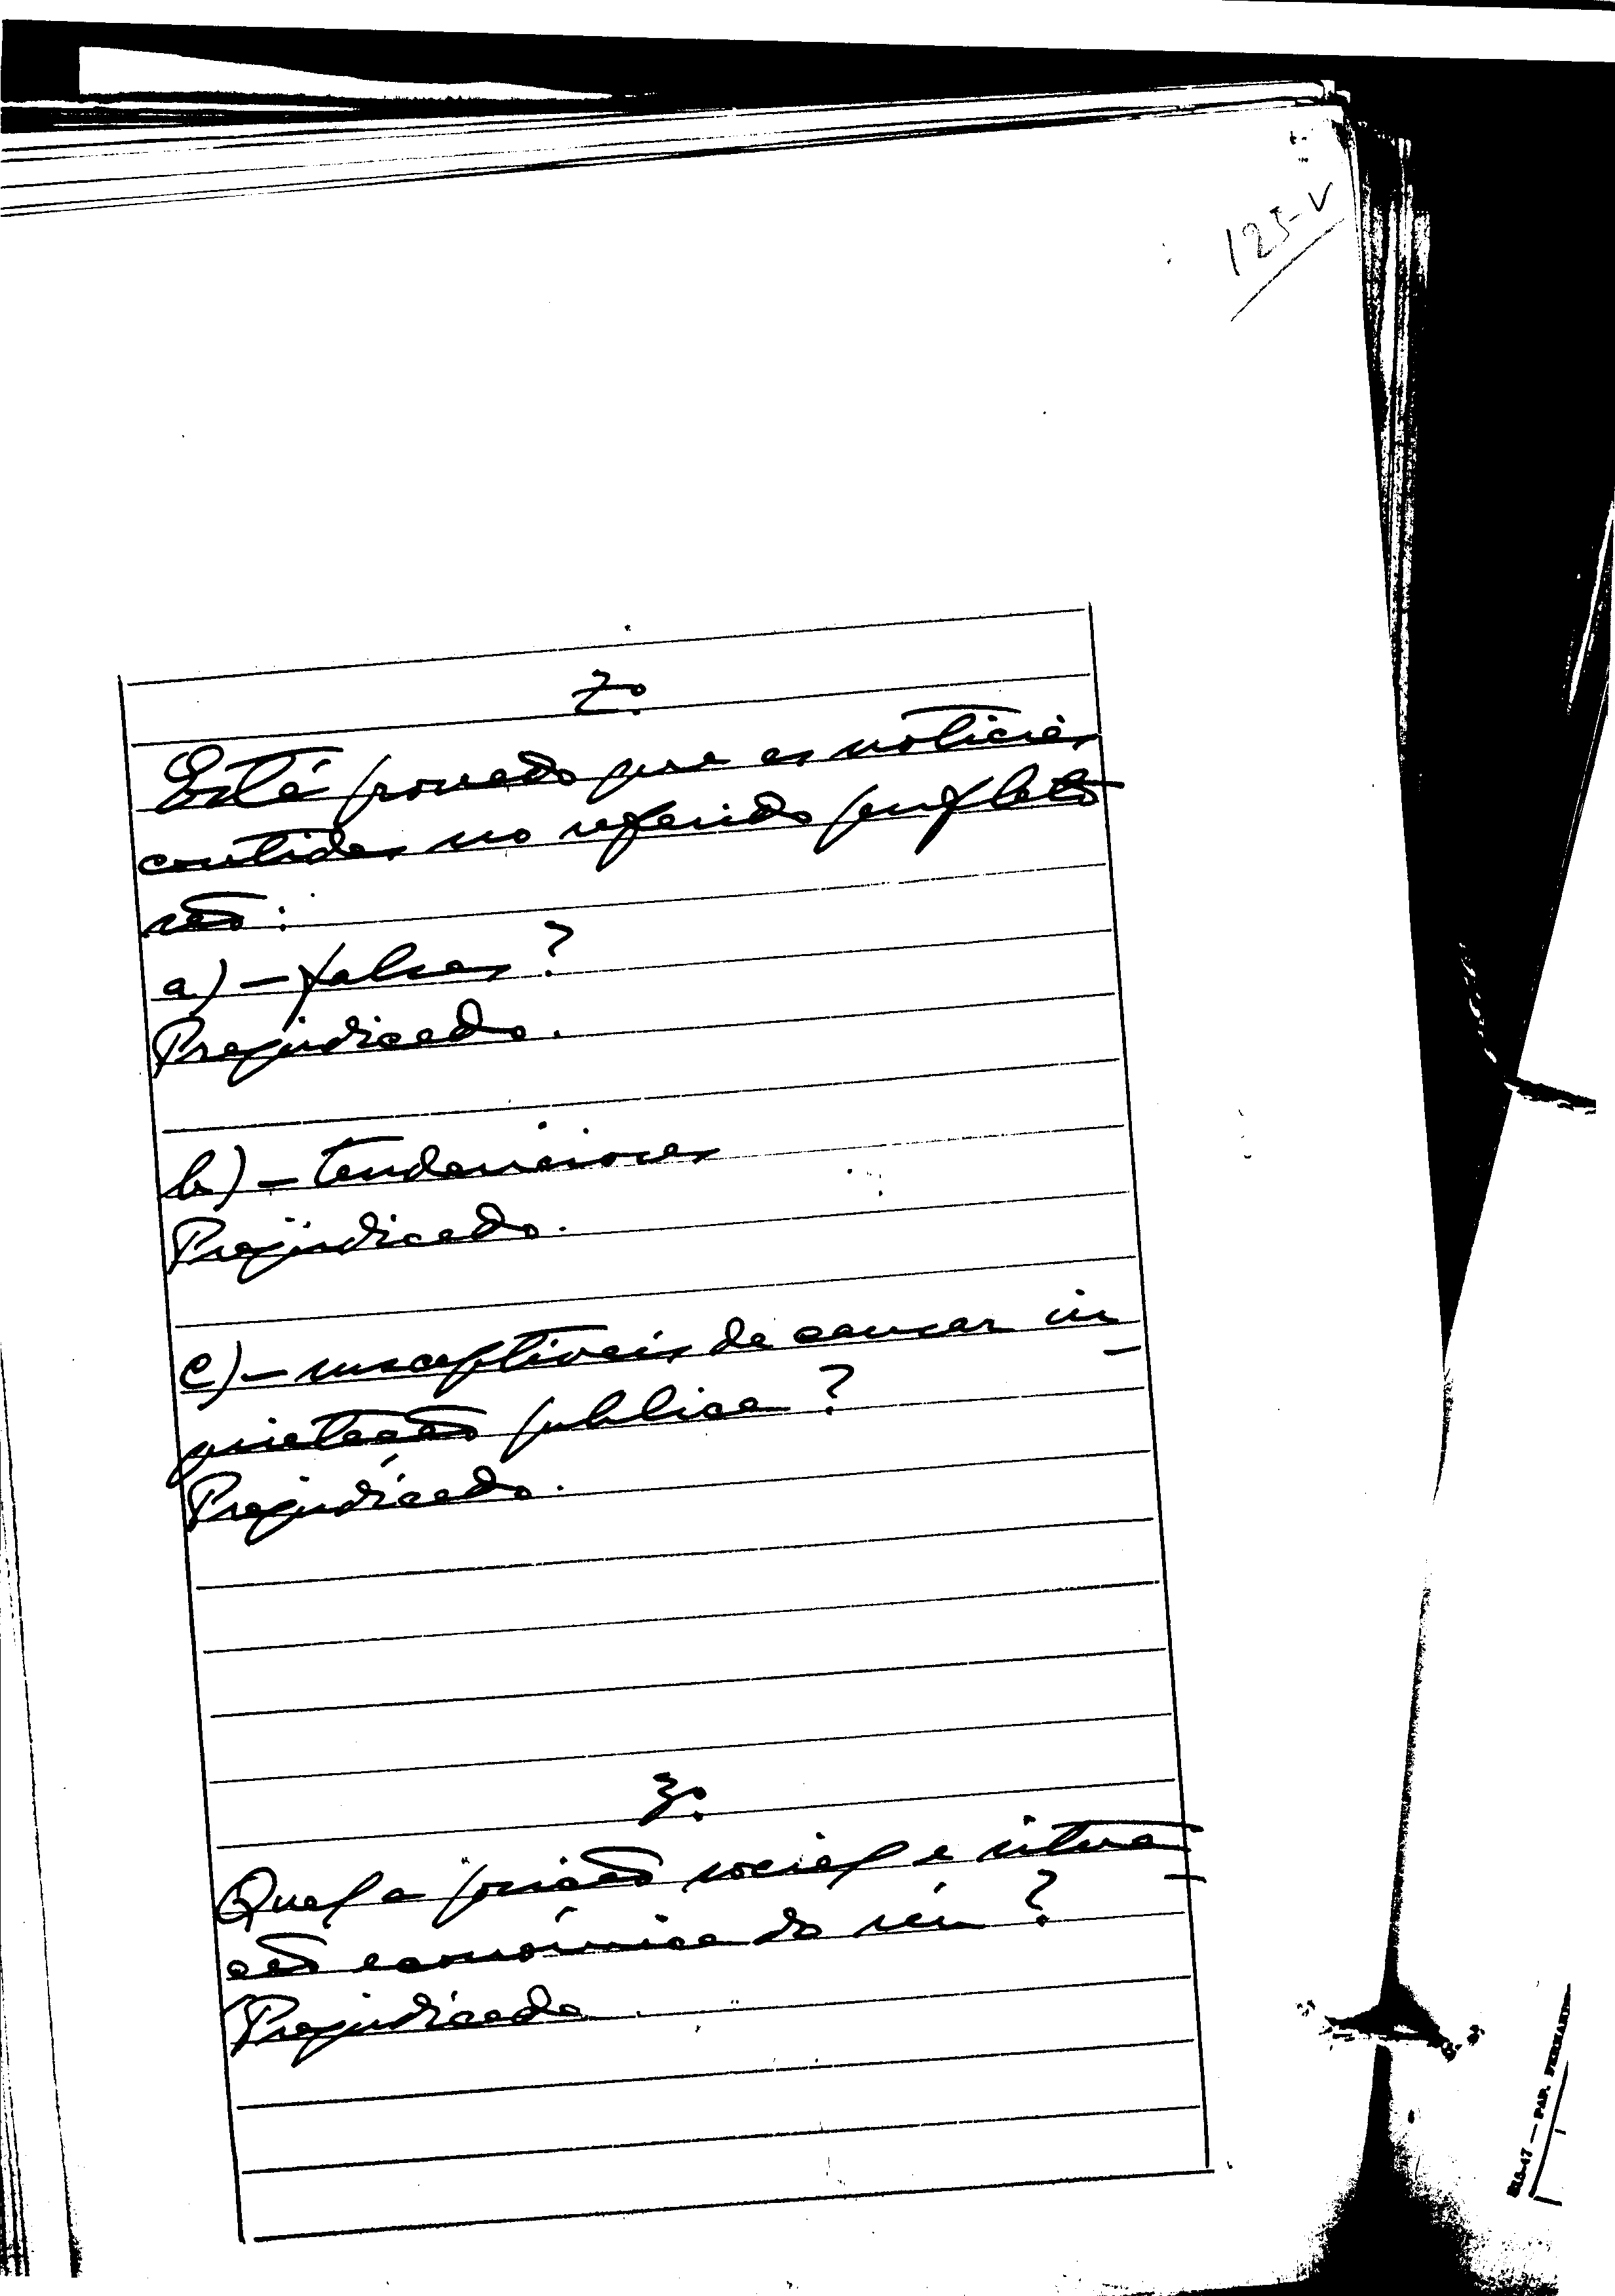 125-V
2º
Está provado que as notícias
contidas no referido panfleto
são:
a) - falsas?
Prejudicado.
b) - tendenciosas
Prejudicado.
c) - susceptíveis de causar in
quietação publica?
Prejudicado.
3º
Qual a posição social e situa
ção económica do réu?
Prejudicado.
— PAP. FERNAND